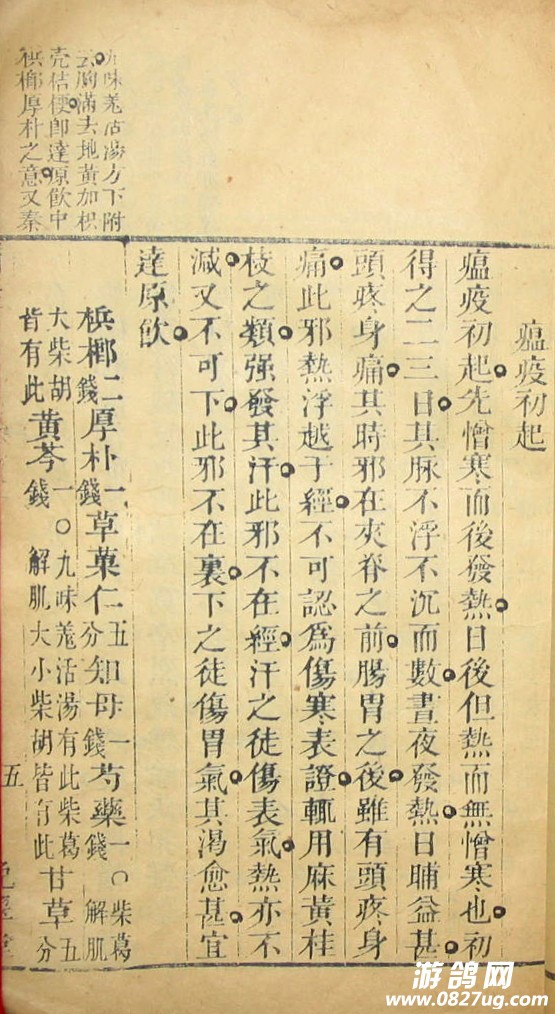 九味羌活湯方下附
云胸滿去地黃加枳
壳桔梗即達原飲中
梹榔厚朴之意又秦
瘟疫初起
瘟疫初起先憎寒而後發熱日後但熱而無憎寒也初
得之二三日其脉不浮不沉而數晝夜發熱日晡益甚
頭疼身痛其時邪在夾脊之前腸胃之後雖有頭疼身
痛此邪熱浮越于經不可認爲傷寒表證輒用麻黃桂
枝之類强發其汗此邪不在經汗之徒傷表氣熱亦不
減又不可下此邪不在裏下之徒傷胃氣其渴愈甚宜
達原飲
梹榔二錢厚朴一錢草菓仁五分知母一錢芍藥一錢○柴葛解肌
大柴胡皆有此黃芩一錢○九味羌活湯有此柴葛解肌大小柴胡皆有此甘草五分
五
游鸽网
www.0827ug.com